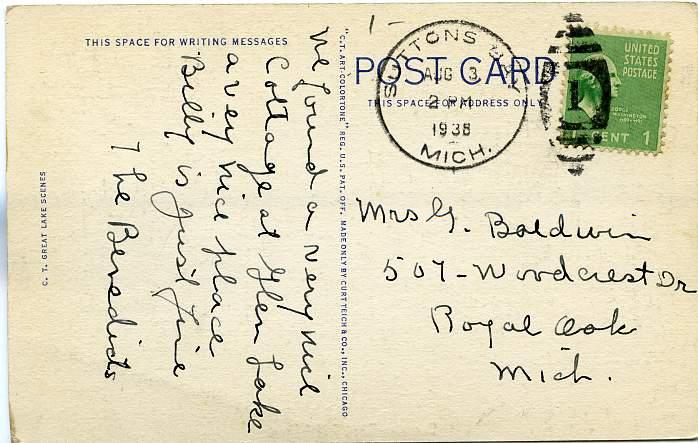 THIS SPACE FOR WRITING MESSAGES
We found a very nice
Cottage at Glen Lake
a very nice place
Billy is just fine
The Benedicts
C. T. GREAT LAKE SCENES
"C.T. ART-COLORTONE" REG. U.S. PAT. OFF. MADE ONLY BY CURT TEICH & CO., INC., CHICAGO
POST CARD
THIS SPACE FOR ADDRESS ONLY
SUTTONS BAY
AUG 3
2 PM
1938
MICH.
UNITED
STATES
POSTAGE
1
GEORGE
WASHINGTON
CENT 1
Mrs G. Baldwin
507 - Woodcrest Dr
Royal Oak
Mich.